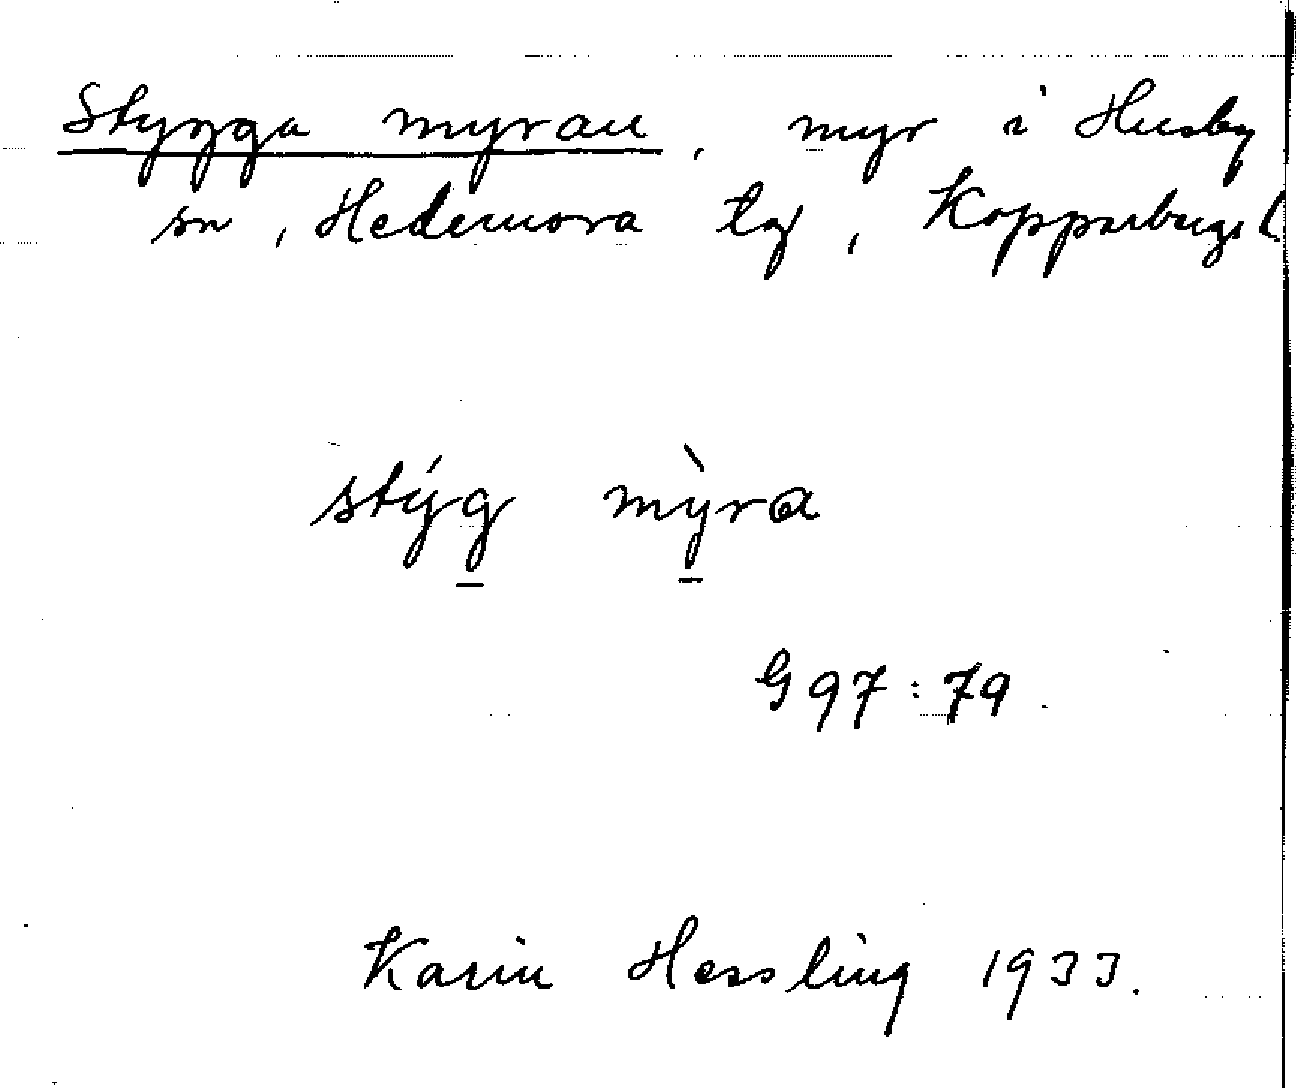 Stygga myran, myr i Husby
sn, Hedemora tg, Kopparbergs l.
stýg mỳra
G 97:79.
Karin Hessling 1933.